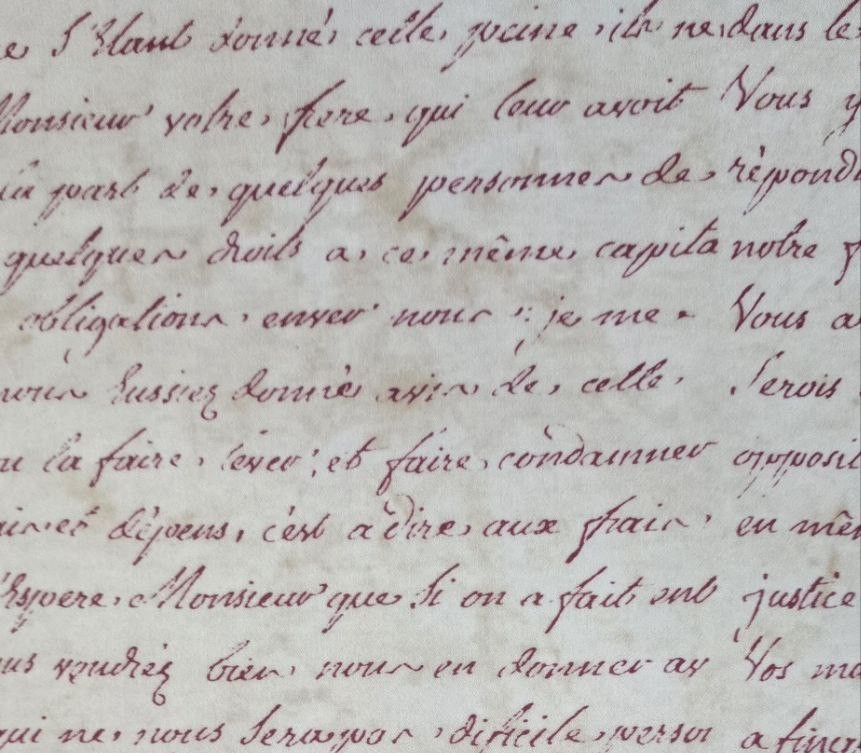 e S'Etant donné cette peine ils ne dans le
Monsieur votre frere qui leur avoit Vous y
la part de quelques personnes de répond
quelques droits a ce même capita notre
obligations enver nous : je me Vous a
nous Eussiez donné avis de cette Serois
la faire lever, et faire condamner opposit
dépens, c'est a dire aux frais en mêm
Espere Monsieur que Si on a fait justice
voudiez bien nous en donner av Vos
qui ne nous Sera pas dificile a